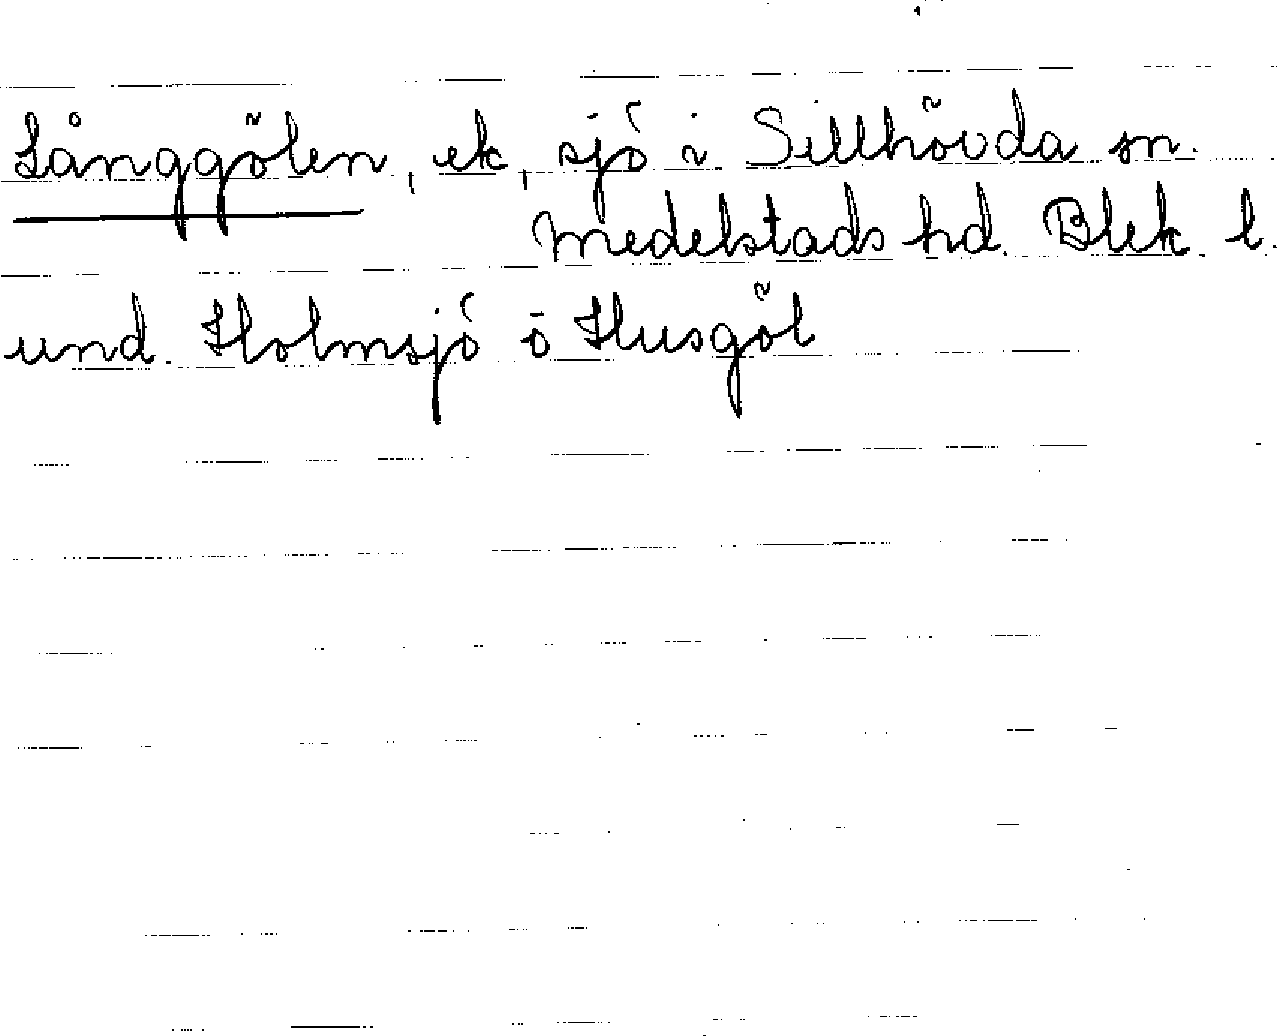 Långgölen, ek, sjö i Sillhövda sn.
Medelstads hd. Blek. l.
und. Holmsjö ö Husgöl